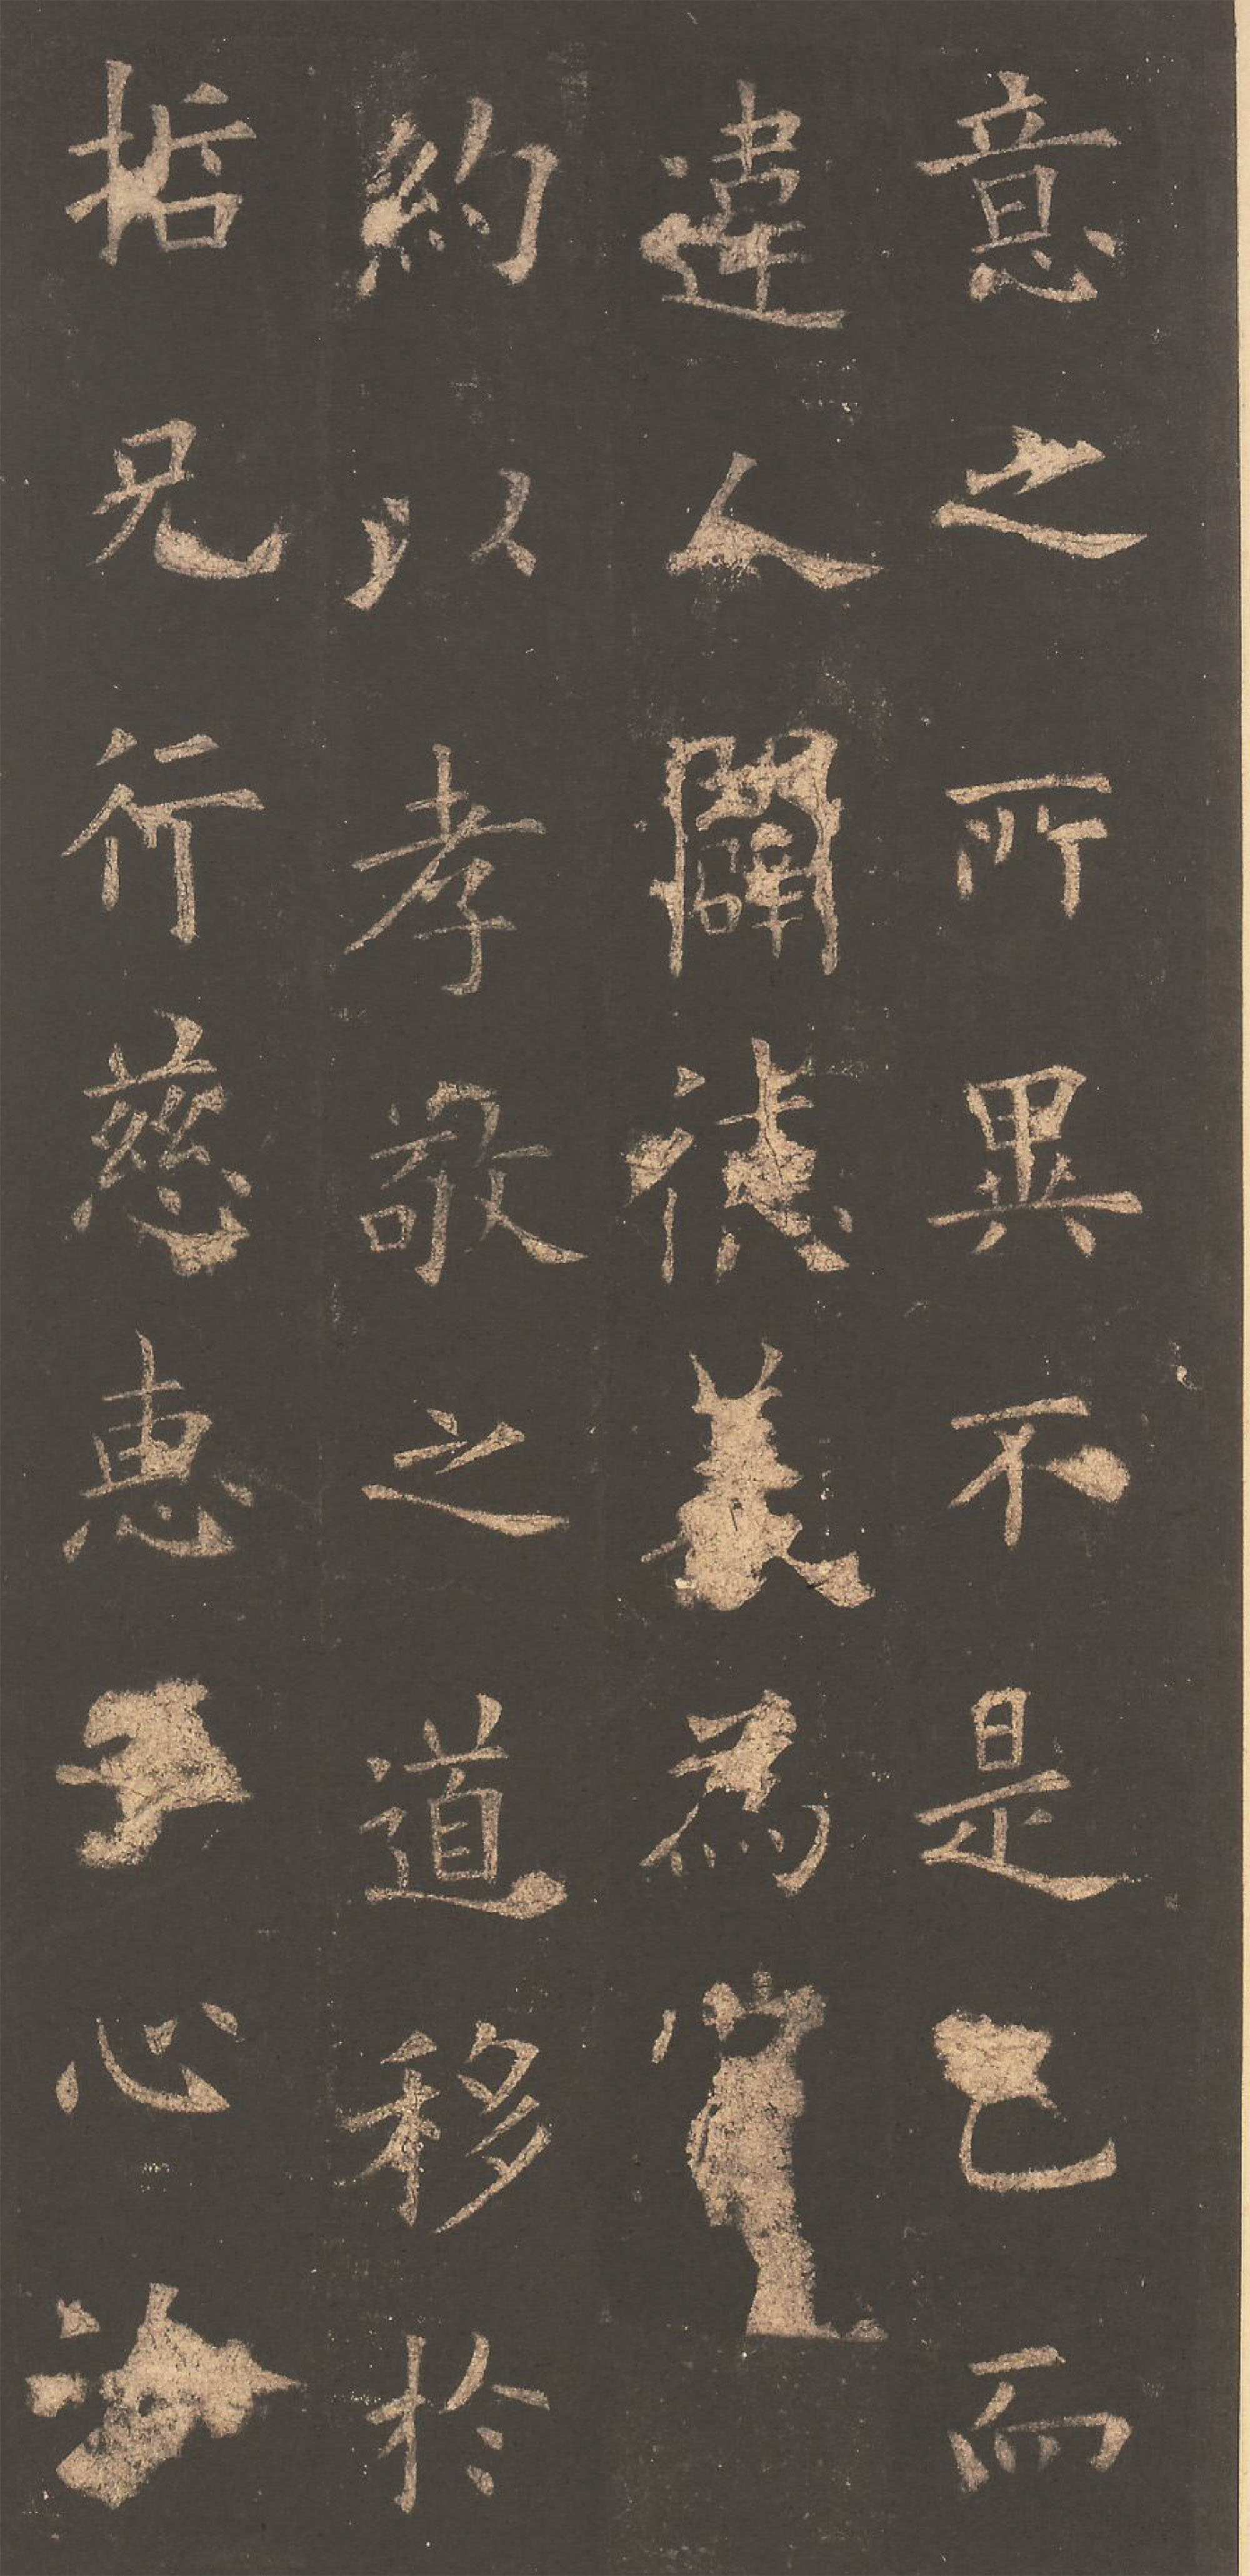 意之所異不是己而
違人闢德義為
約以孝敬之道移於
哲兄行慈惠心